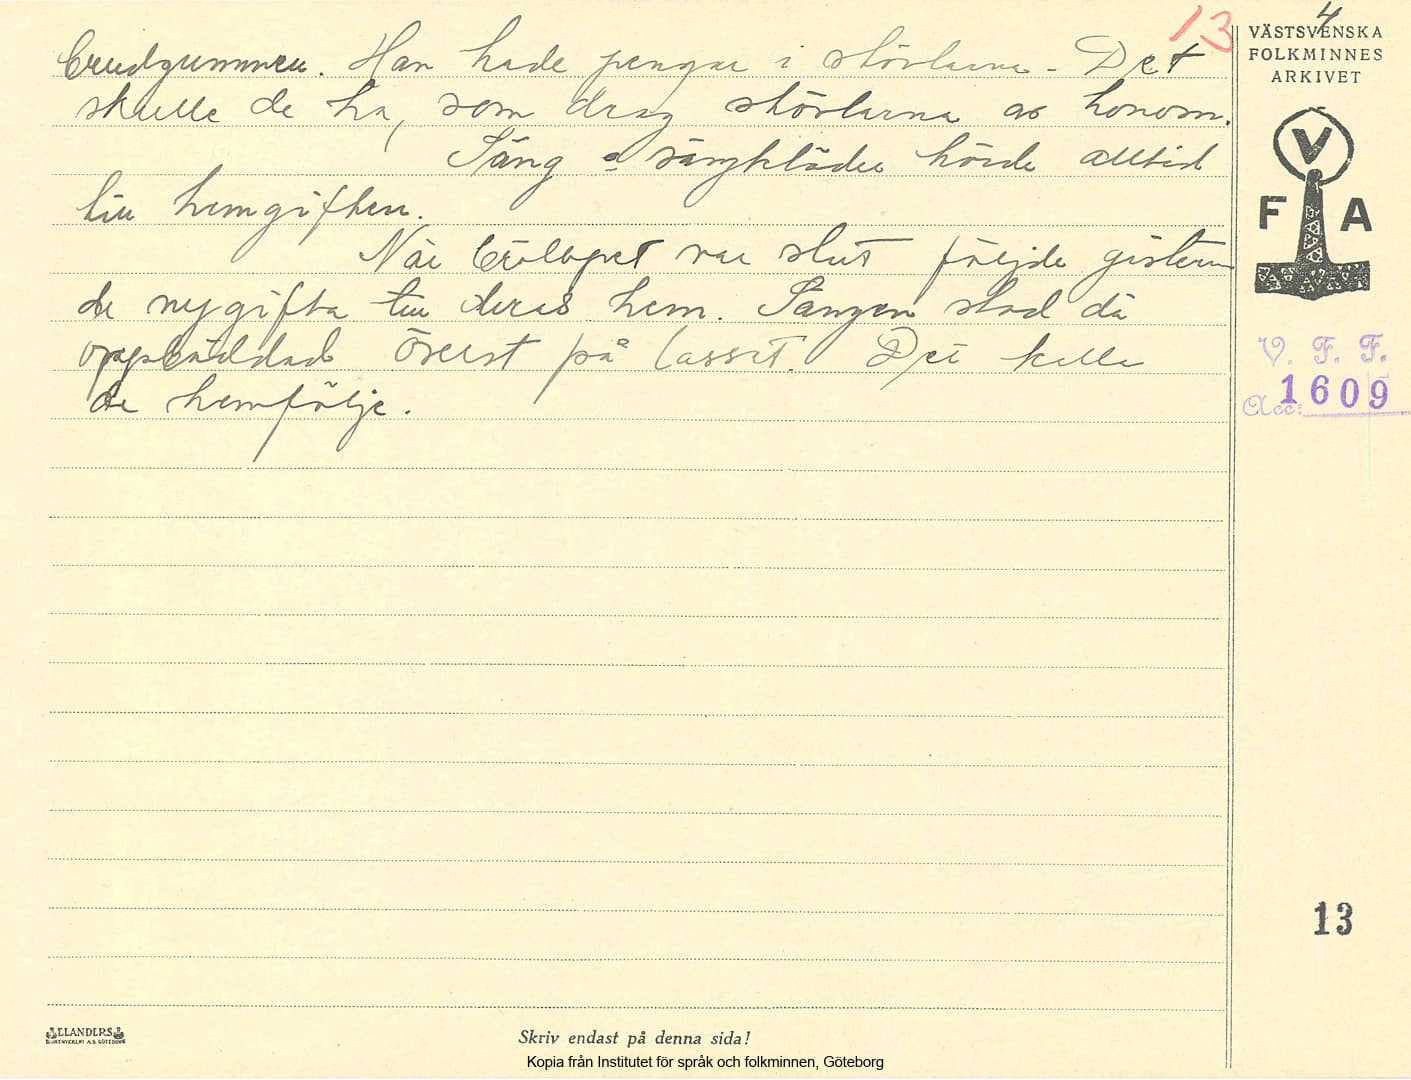 13
4
brudgummen. Han hade pengar i stövlarna - Det
skulle de ha, som drog stövlarna av honom.
Säng o sängkläder hörde alltid
till hemgiften.
När bröllopet var slut följde gästerna
de nygifta till deras hem. Sängen stod då
uppbäddad överst på lasset. Det kalla
de hemfölje.
VÄSTSVENSKA
FOLKMINNES
ARKIVET
V
F A
V. F. F.
Acc: 1609
13
ELANDERS
BOKTRYCKERI A.B. GÖTEBORG
Skriv endast på denna sida!
Kopia från Institutet för språk och folkminnen, Göteborg